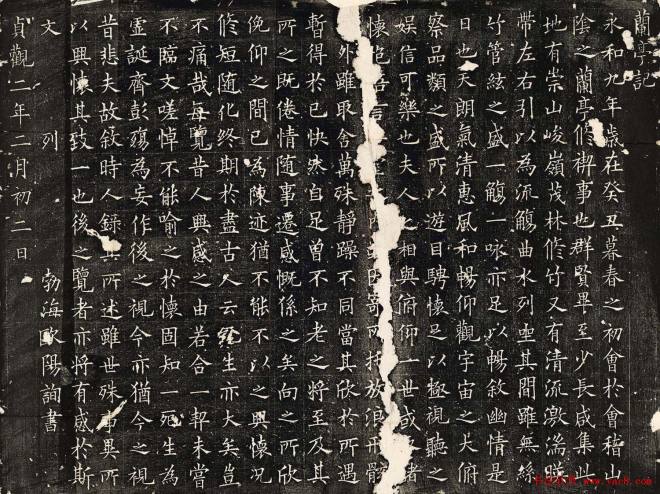 蘭亭記
永和九年歲在癸丑暮春之初會於會稽山
陰之蘭亭修禊事也群賢畢至少長咸集此
地有崇山峻嶺茂林修竹又有清流激湍暎
帶左右引以為流觴曲水列坐其間雖無絲
竹管絃之盛一觴一咏亦足以暢敘幽情是
日也天朗氣清惠風和暢仰觀宇宙之大俯
察品類之盛所以遊目騁懷足以極視聽之
娛信可樂也夫人之相與俯仰一世或諸
懷抱言寄所託放浪形骸
外雖取舍萬殊靜躁不同當其欣於所遇
暫得於己快然自足曾不知老之將至及其
所之既倦情隨事遷感慨係之矣向之所欣
俛仰之間已為陳迹猶不能不以之興懷況
修短隨化終期於盡古人云死生亦大矣豈
不痛哉每覽昔人興感之由若合一契未嘗
不臨文嗟悼不能喻之於懷固知一死生為
虛誕齊彭殤為妄作後之視今亦猶今之視
昔悲夫故敘時人錄其所述雖世殊事異所
以興懷其致一也後之覽者亦將有感於斯
文 列 勃海歐陽詢書
貞觀二年二月初二日